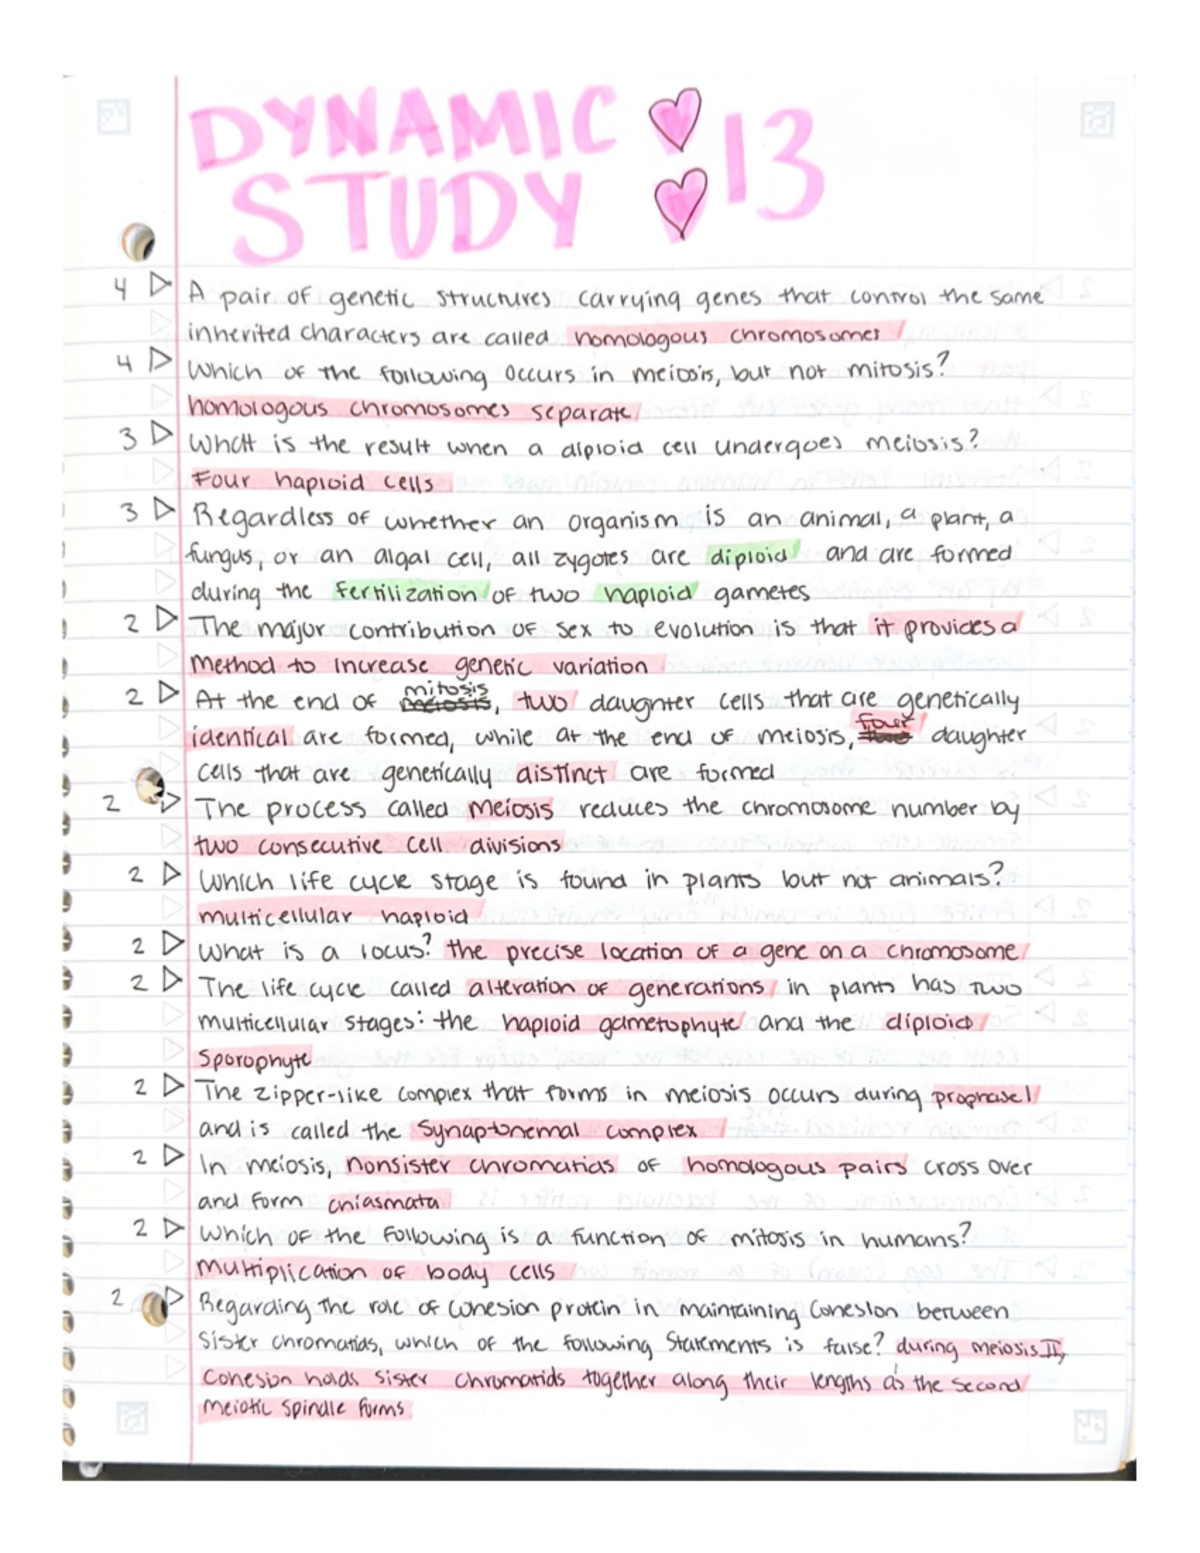 DYNAMIC
STUDY
13
4 A pair of genetic structures carrying genes that control the same
inherited characters are called homologous chromosomes
4 Which of the following occurs in meiosis, but not mitosis?
homologous chromosomes separate
3 What is the result when a diploid cell undergoes meiosis?
Four haploid cells
3 Regardless of whether an organism is an animal, a plant, a
fungus, or an algal cell, all zygotes are diploid and are formed
during the fertilization of two haploid gametes
2 The major contribution of sex to evolution is that it provides a
method to increase genetic variation
2 At the end of mitosis meiosis, two daughter cells that are genetically
identical are formed, while at the end of meiosis, four daughter
cells that are genetically distinct are formed
2 The process called meiosis reduces the chromosome number by
two consecutive cell divisions
2 Which life cycle stage is found in plants but not animals?
multicellular haploid
2 What is a locus? the precise location of a gene on a chromosome
2 The life cycle called alteration of generations in plants has two
multicellular stages: the haploid gametophyte and the diploid
sporophyte
2 The zipper-like complex that forms in meiosis occurs during prophase I
and is called the synaptonemal complex
2 In meiosis, nonsister chromatids of homologous pairs cross over
and form chiasmata
2 Which of the following is a function of mitosis in humans?
multiplication of body cells
2 Regarding the role of cohesion protein in maintaining cohesion between
sister chromatids, which of the following statements is false? during meiosis II,
cohesion holds sister chromatids together along their lengths as the second
meiotic spindle forms